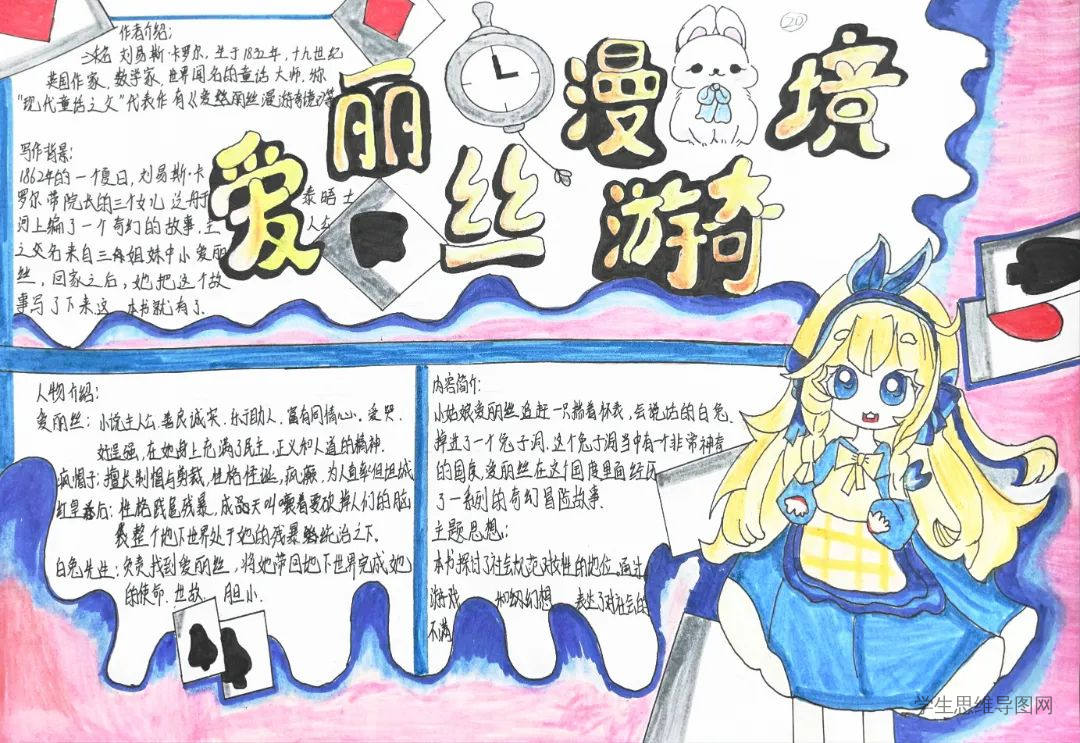 爱丽丝漫游奇境
20
作者介绍:
刘易斯·卡罗尔,生于1832年,十九世纪
英国作家,数学家,世界闻名的童话大师,称
"现代童话之父"代表作有《爱丽丝漫游奇境》等
写作背景:
1862年的一个夏日,刘易斯·卡
罗尔带院长的三个女儿 泛舟于 泰晤士
河上编了一个奇幻的故事,主人公
之名来自三姐妹中小爱丽
丝,回家之后,她把这个故
事写了下来,这 本书就有了.
人物介绍:
爱丽丝:小说主人公,善良诚实.乐于助人,富有同情心.爱哭.
好逞强,在她身上充满了民主,正义和人道的精神.
疯帽子:擅长制帽与剪裁,性格怪诞,疯癫,为人直率但坦诚
红皇后:性格残忍残暴,成天叫嚷着要砍掉人们的脑
整个地下世界处于她的残暴统治之下.
白兔先生:负责找到爱丽丝,将她带回地下世界完成她
的使命.世故,胆小.
内容简介:
小姑娘爱丽丝追赶一只揣着怀表,会说话的白兔,
掉进了一个兔子洞.这个兔子洞当中有一个非常神奇
的国度,爱丽丝在这个国度里面经历
了一系列的奇幻冒险故事.
主题思想:
本书探讨了社会规范对女性的地位,通过
游戏 幻想 表达了对社会的
不满
学生思维导图网